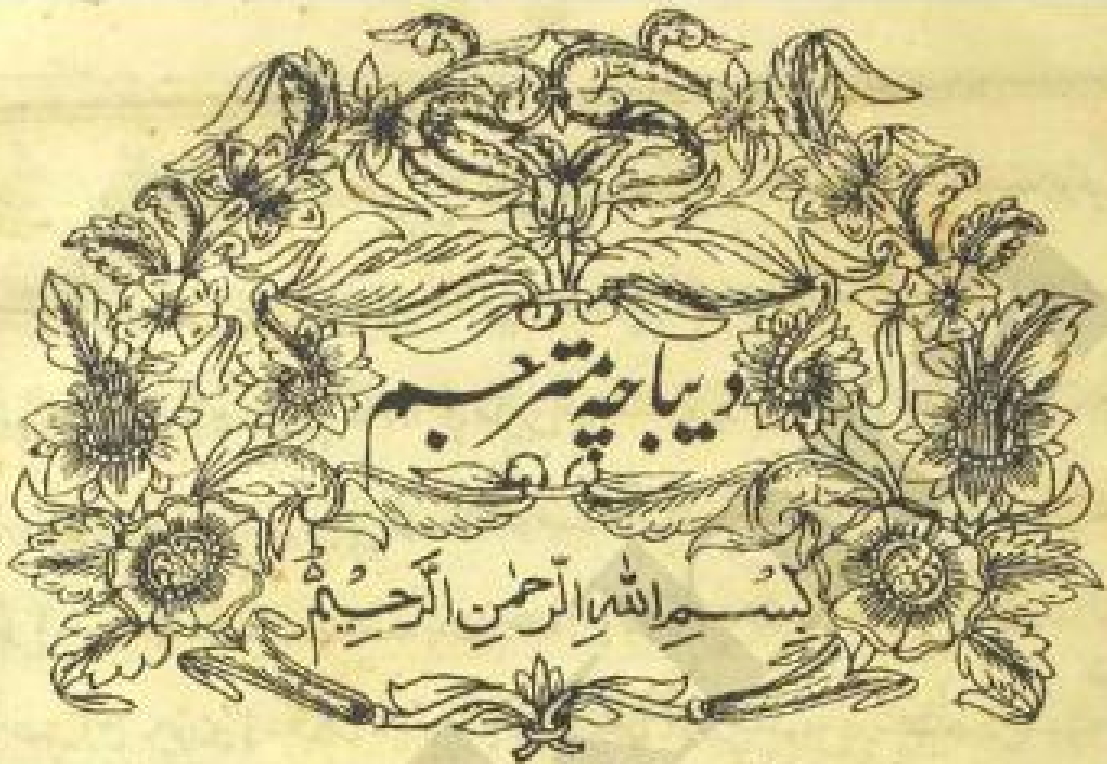 دیباچہ مترجم
بِسْمِ اللهِ الرَّحْمٰنِ الرَّحِيْمِ